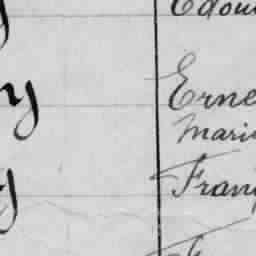 Edou
y
Erne
y
Mari
Fran
y